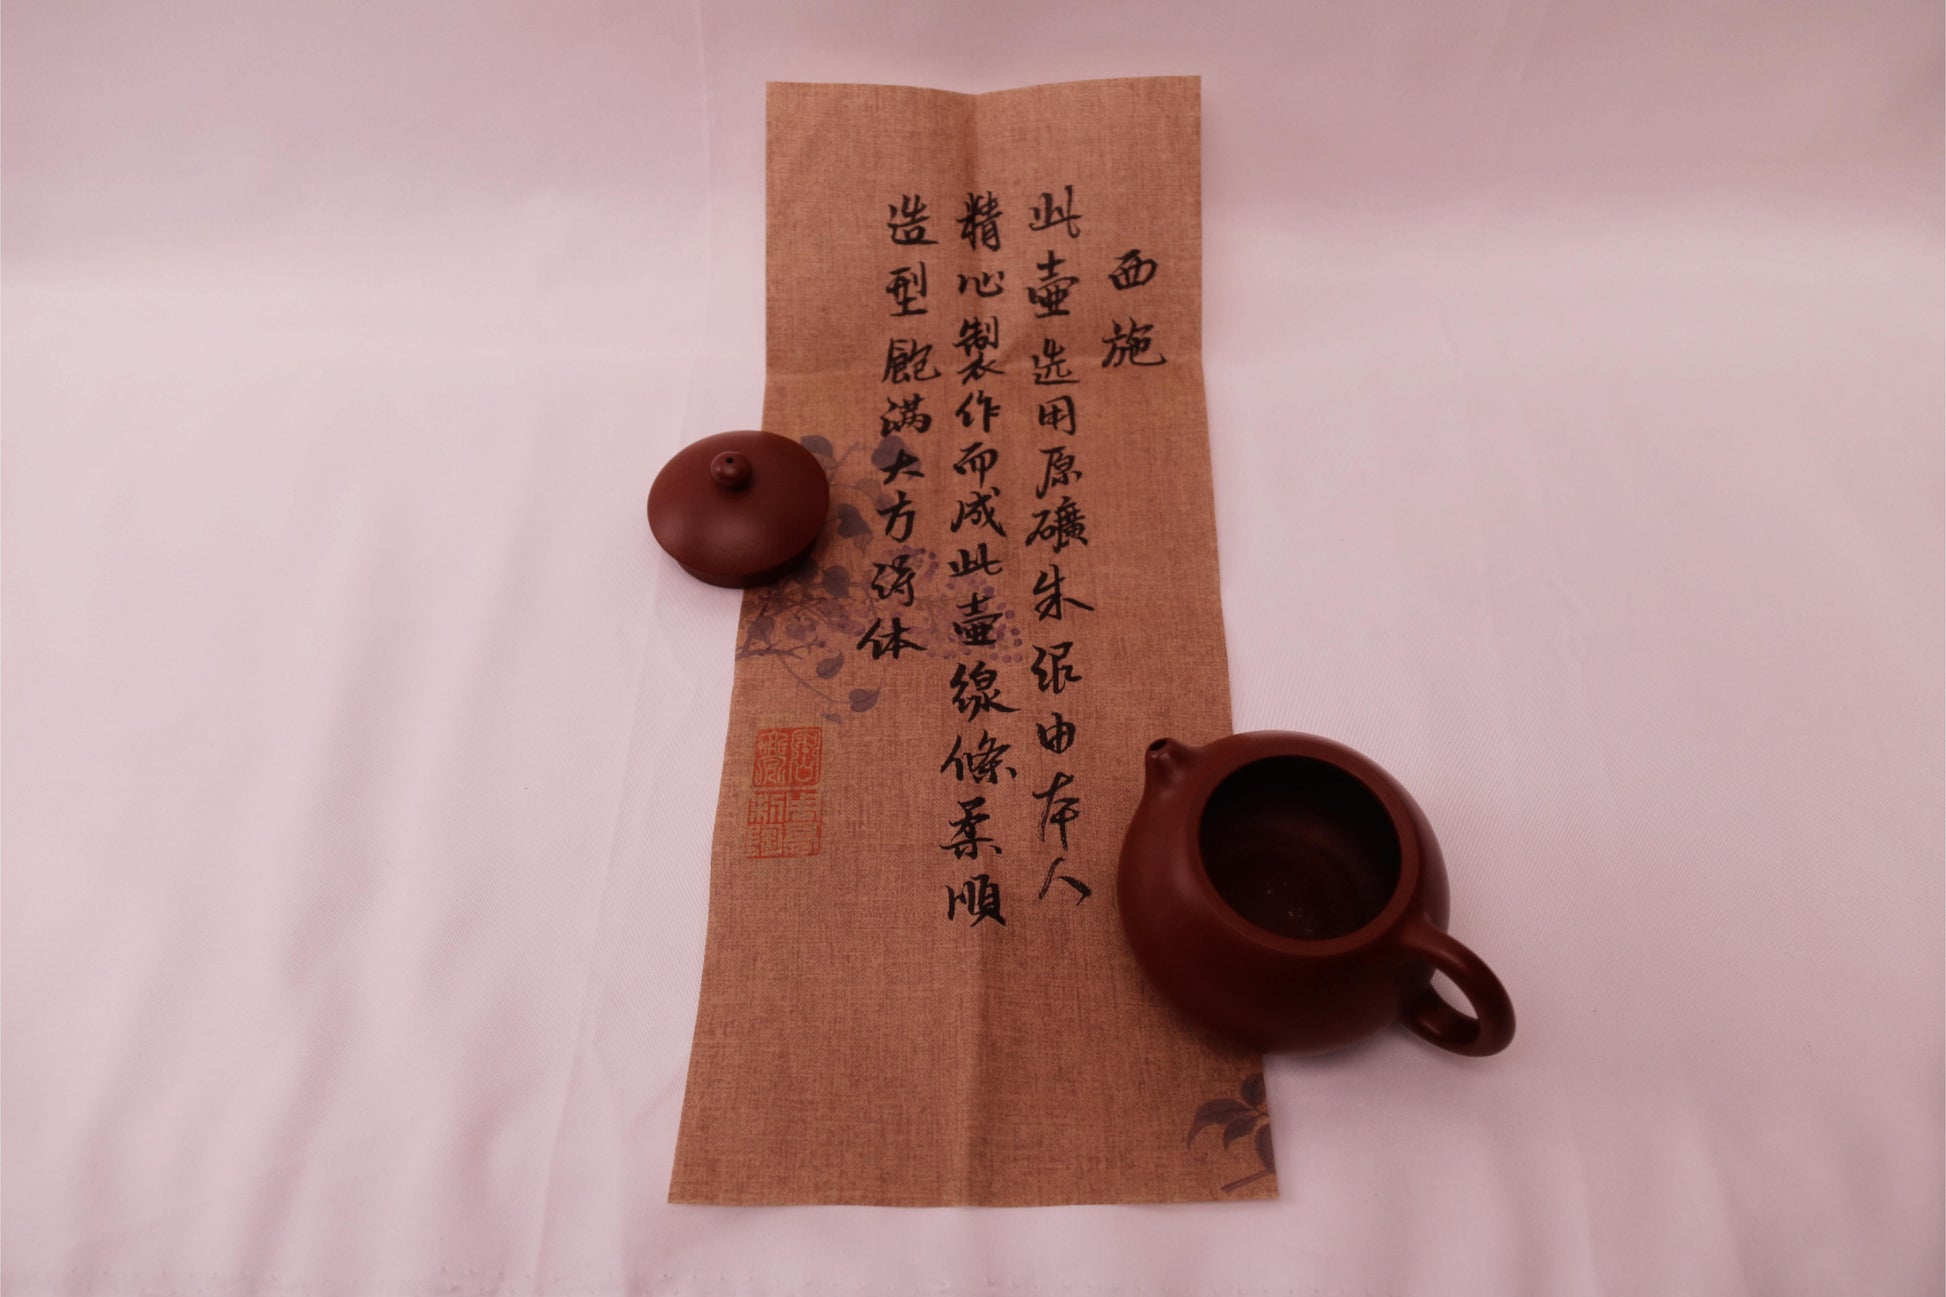 西施
此壶选用原礦朱泥由本人
精心製作而成此壶線條柔順
造型飽满大方得体